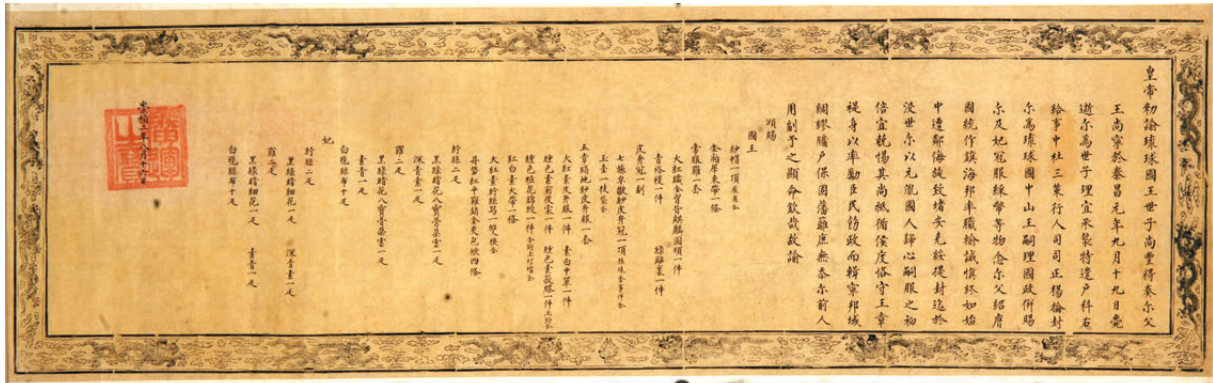 皇帝勅諭琉球國王世子尚豐得奏尔父
王尚寧於泰昌元年九月十九日薨
逝尔爲世子理宜承襲特遣户科右
給事中杜三策行人司司正楊掄封
尔爲琉球國中山王嗣理國政併賜
尔及妃冠服綵幣等物念尔父紹膺
國統作鎮海邦率職輸誠慎終如始
中遭鄰海旋致堵安克綏提封迄於
浸世尔以元儲國人歸心嗣服之初
倍宜兢惕其尚祗循侯度恪守王章
禔身以率勵臣民飭政而輯寧邦域
綢繆牖户保固藩籬庶無忝尔前人
用副予之顯命欽哉故諭
頒賜
國王
紗帽一頂展角全
金廂犀束帶一條
常服羅一套
大紅織金胷背麒麟圓領一件
青褡𧞤一件 綠貼裏一件
皮弁冠一副
七旒皂皺紗皮弁冠一頂旒珠金事件全
玉圭一枝袋全
五章絹地紗皮弁服一套
大紅素皮弁服一件 素白中單一件
纁色素前後裳一件 纁色素蔽膝一件玉鈎全
纁色粧花錦綬一件金鈎玉玎璫全
紅白素大帶一條
大紅素紵絲舄一雙襪全
丹礬紅平羅銷金夾包袱四條
紵絲二疋
黑綠粧花八寶骨朵雲一疋
深青素一疋
羅二疋
黑綠粧花八寶骨朵雲一疋
青素一疋
白氁絲布十疋
妃
紵絲二疋
黑綠暗細花一疋 深青素一疋
羅二疋
黑綠暗細花一疋 素青一疋
白氁絲布十疋
崇禎二年八月十六日
廣運之寶